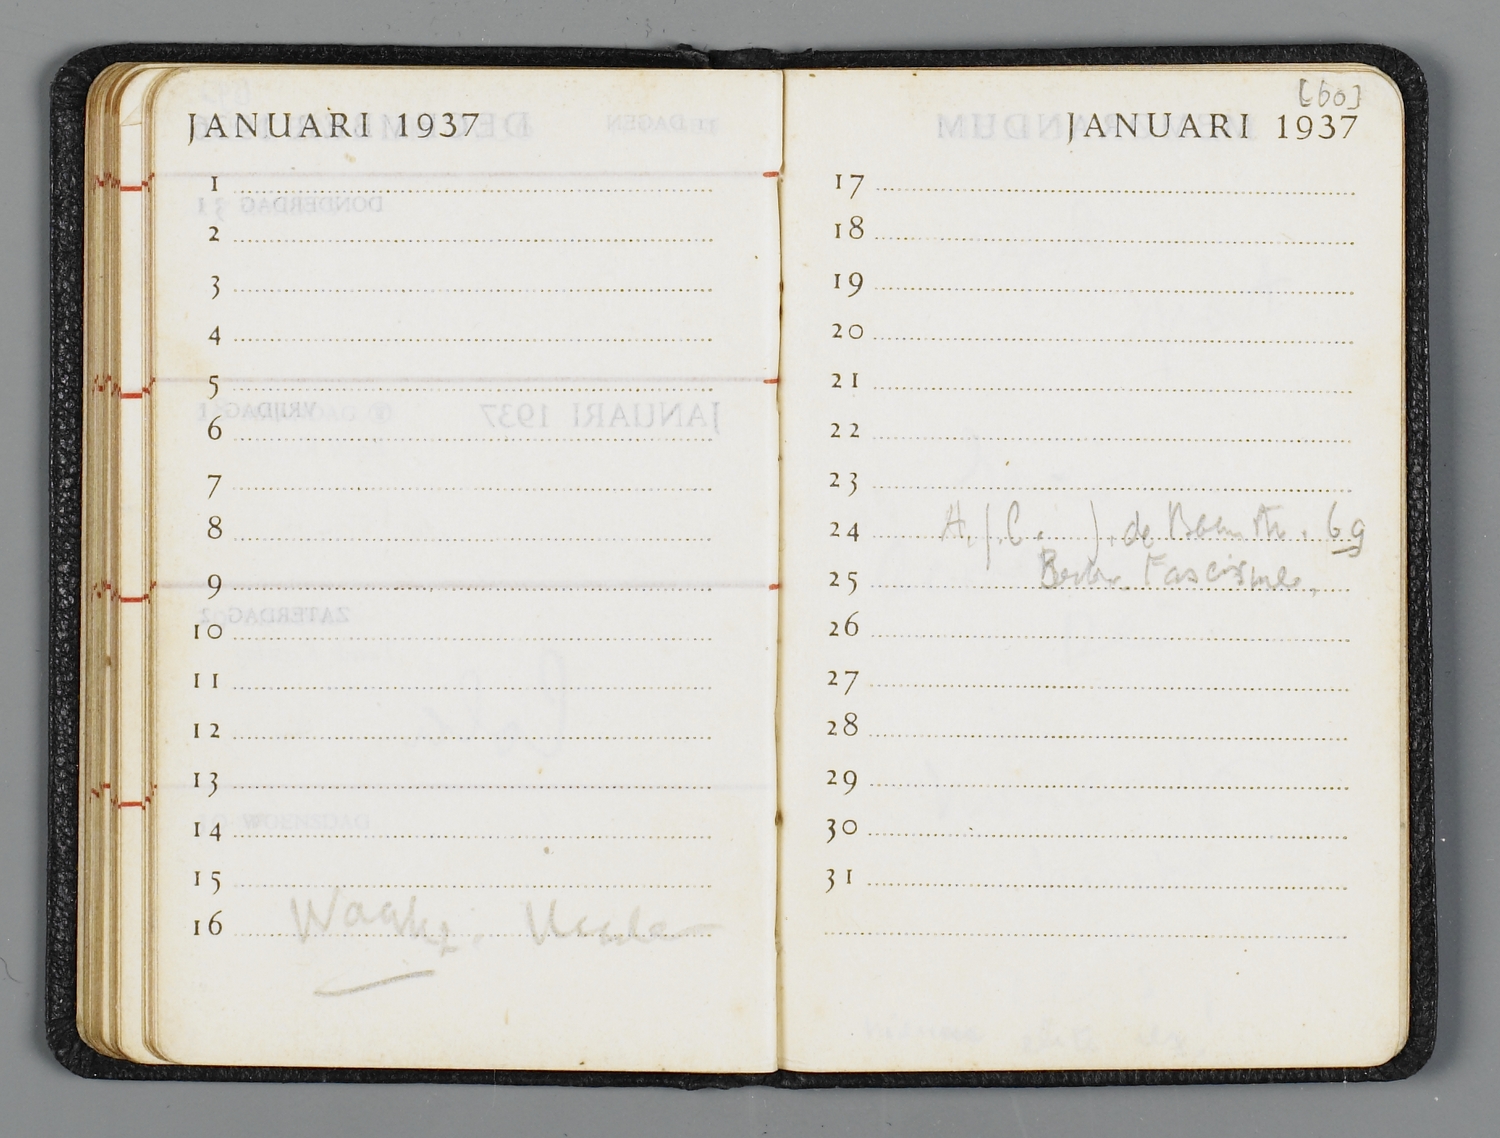 JANUARI 1937
1
2
3
4
5
6
7
8
9
10
11
12
13
14
15
16
[60]
JANUARI 1937
17
18
19
20
21
22
23
24 H.J.C. J. de 69
25 Fascisme
26
27
28
29
30
31